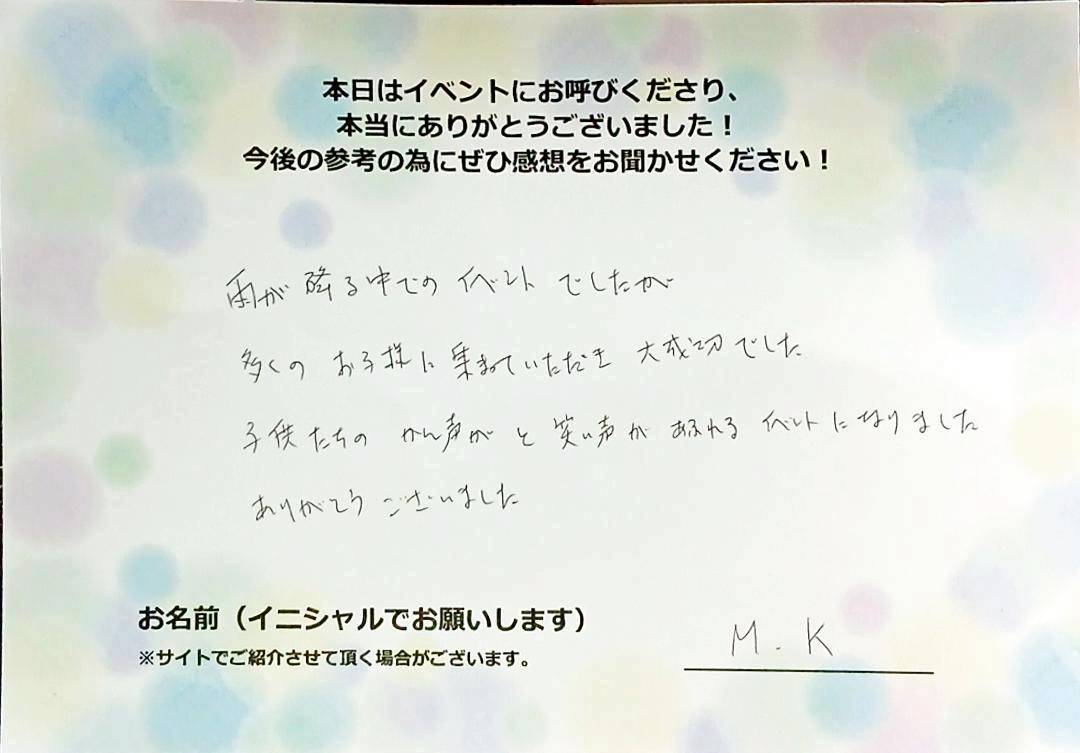 本日はイベントにお呼びくださり、
本当にありがとうございました！
今後の参考の為にぜひ感想をお聞かせください！
雨が降る中での イベント でしたが
多くの お子様に集まっていただき 大成功でした
子供たちの かん声が と 笑い声が あふれる イベントになりました
ありがとう ございました
お名前（イニシャルでお願いします）
M.K
※サイトでご紹介させて頂く場合がございます。